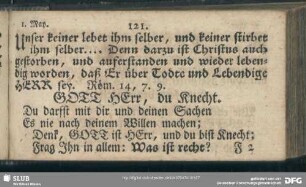 1. May.
121.
Unser keiner lebet ihm selber, und keiner stirbet
ihm selber... Denn darzu ist Christus auch
gestorben, und auferstanden und wieder leben-
dig worden, daß Er über Todte und Lebendige
HERR sey. Röm. 14, 7. 9.
GOTT HErr, du Knecht.
Du darfst mit dir und deinen Sachen
Es nie nach deinem Willen machen;
Denk, GOTT ist HErr, und du bist Knecht;
Frag Ihn in allem: Was ist recht?
F 2
SLUB
Wir führen Wissen.